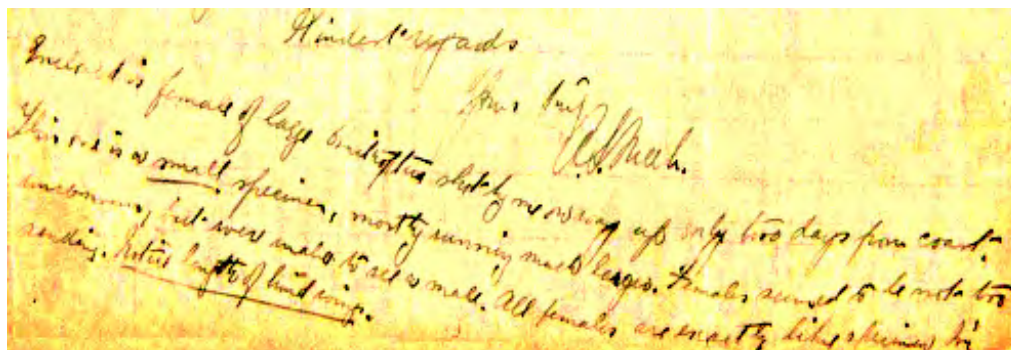 Kindest regards
Yours truly
A. S. Meek.
Enclosed is female of large Ornithoptera shot by me on way up only two days from coast.
This one is a small specimen, mostly running much larger. Females seemed to be not too
uncommon, but were unable to see a male. All females are exactly like specimen I'm
sending. Notice length of hind wings.